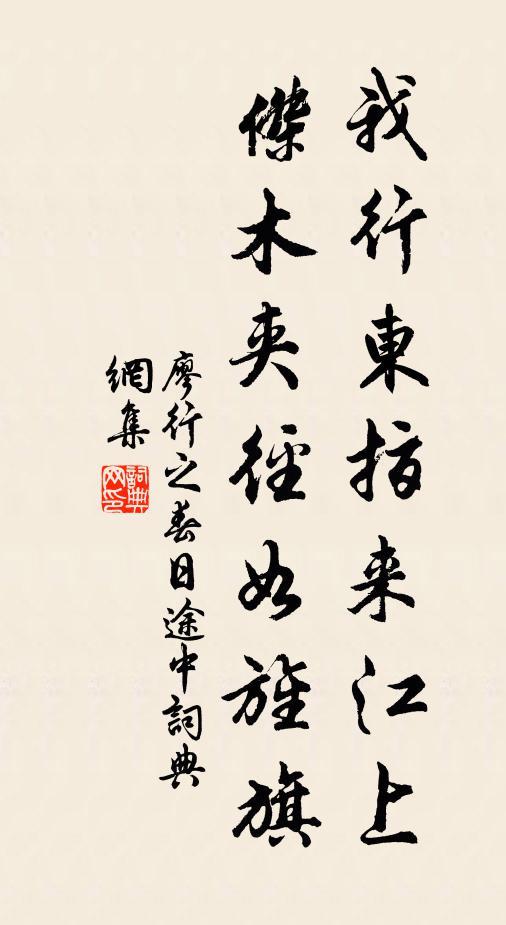 我行東指来江上
傑木夾徑如旌旗
廖行之春日途中詞典
網集
詞典網印